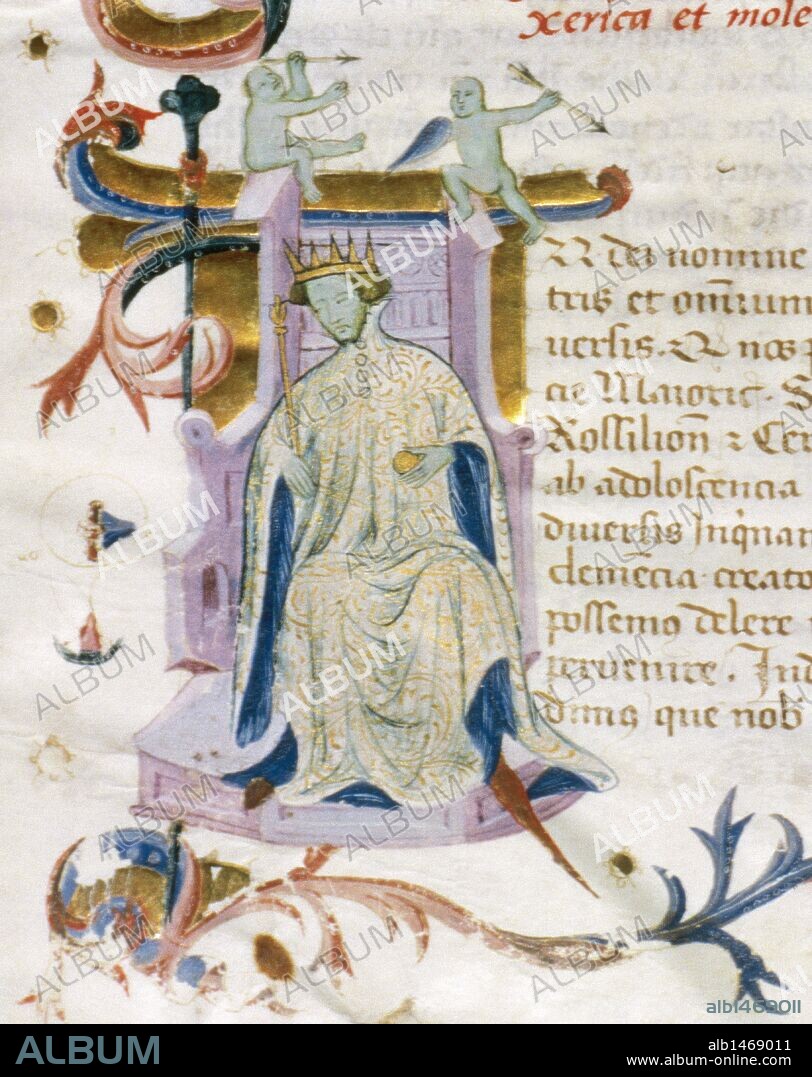 xerica et mole
dei nomine
tris et om̃ium
uersis. Et nos p
cie Maioric. S
Rossilioñ & Cer
ab adoloscencia
diuersis Inq̃nan
clemecia creato
possemus delere
peruenire. Iud
dimus que nob
ALBUM
alb1469011
ALBUM
alb1469011
www.album-online.com